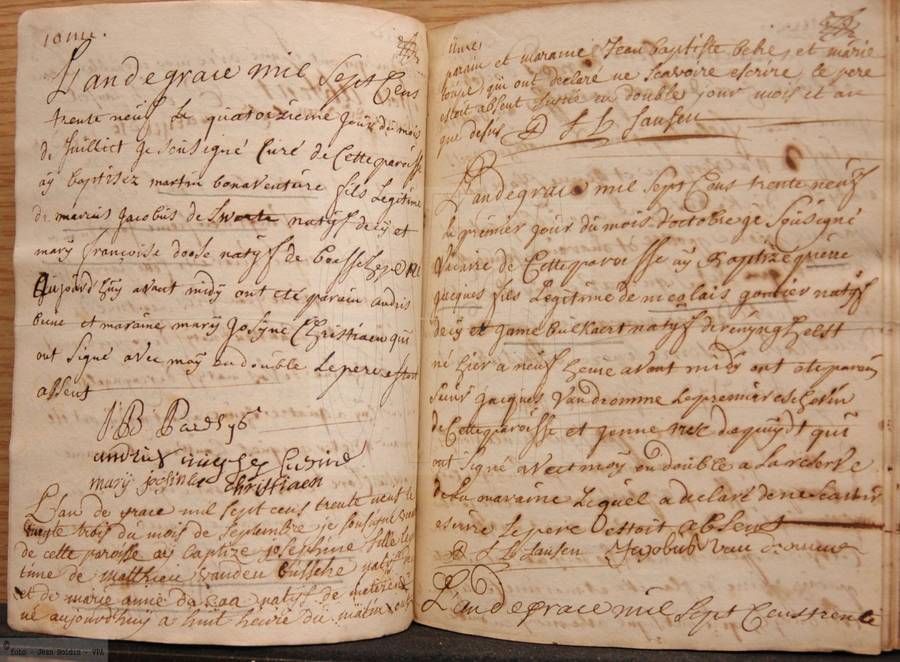 L'an de grace mil Sept Cens
trente neuf Le quatorzieme Jour du mois
de Juilliet Je sousigné Curé de Cette paroisse
aÿ baptisez martin bonaventure fils Legitime
de marcus Jacobus de natÿf decÿ et
marÿ françoise doose natÿf de boesche
aujourd'huÿ avant midÿ ont eté parain andris
et maraine marÿ Josÿne Christiaen qui
ont Signé avec moÿ en double Le pere estoit
absent
JB
marÿ josine Christiaen
L'an de grace mil sept cens trente neuf le
vingte trois du mois de septembre je sousigné
de cette paroisse aÿ baptize josephine fille legi
time de matthieu vanden bussche natÿf
et de marie anne natÿf de
né aujourdhuÿ a huit heure du matin
parain et maraine Jean baptiste et marie
qui ont declaré ne Scavoire escrire, le pere
estoit absent en double jour mois et an
que desus D L B Jansen
L'an de grace mil Sept Cens trente neuf
le premier jour du mois d'octobre je Sousigné
vicaire de Cette paroisse aÿ Baptizé piere
jacques fils Legitime de nicolais gontier natÿf
decÿ et Janne natÿf de renÿnghelst
né hier a neuf heure avant midÿ ont eté parain
Sieur Jacques Vandromme Le premier eschevin
de Cette paroisse et Jenne qui
ont Signé avec moÿ en double a La reserve
de La maraine Lequel a declaré de ne scavoir
escrire Le pere estoit absent
D L B Jansen Jacobus van dromme
L'an de grace mil Sept Cens trente
© foto - Jean Boidin - VPA